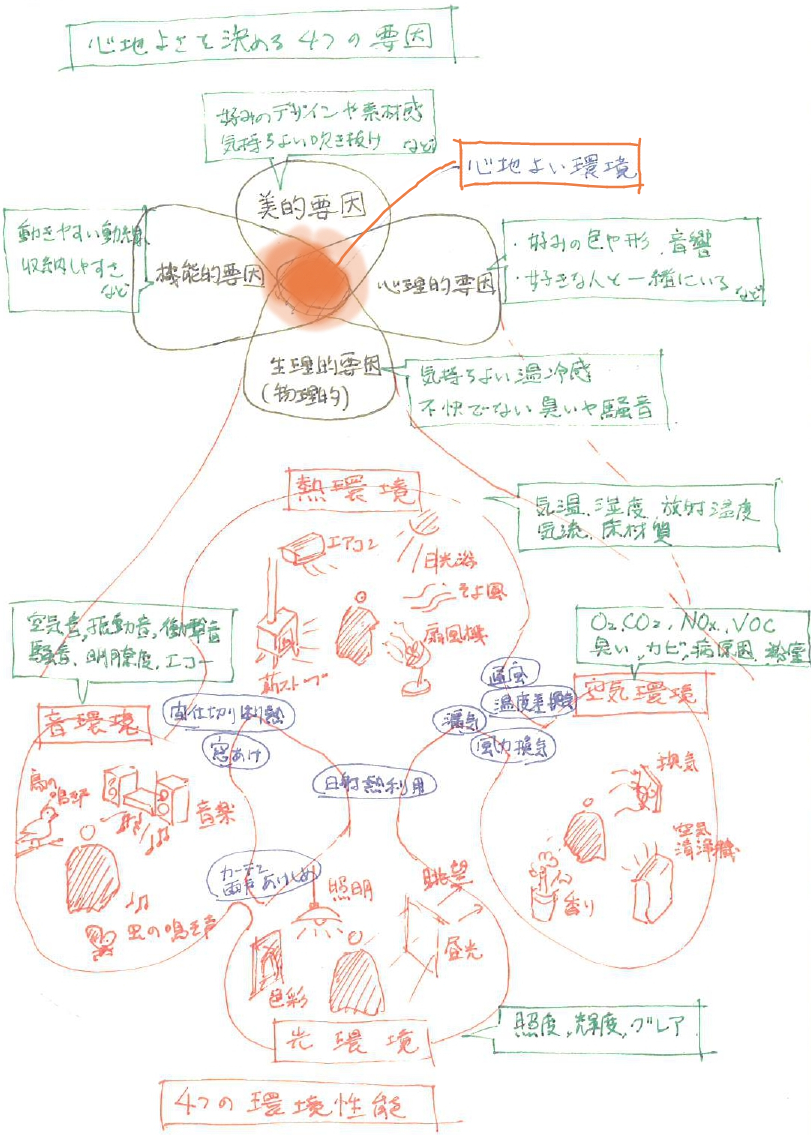 心地よさを決める4つの要因
好みのデザインや素材感
気持ちよい吹き抜け など
心地よい環境
美的要因
動きやすい動線
収納しやすさ
など
機能的要因
心理的要因
・好みの色や形、音響
・好きな人と一緒にいる など
生理的要因
(物理的)
気持ちよい温冷感
不快でない臭いや騒音
熱環境
気温、湿度、放射温度
気流、床材質
エアコン
日光浴
そよ風
扇風機
薪ストーブ
空気音、振動音、衝撃音
騒音、明瞭度、エコー
O2、CO2、NOx、VOC
臭い、カビ、病原菌、粉塵
音環境
空気環境
間仕切り
窓あけ
通風
温度差換気
漏気
風力換気
日射熱利用
鳥の
鳴声
音楽
虫の鳴き声
換気
空気
清浄機
香り
カーテン
雨戸あけしめ
照明
眺望
昼光
色彩
光環境
照度、輝度、グレア
4つの環境性能